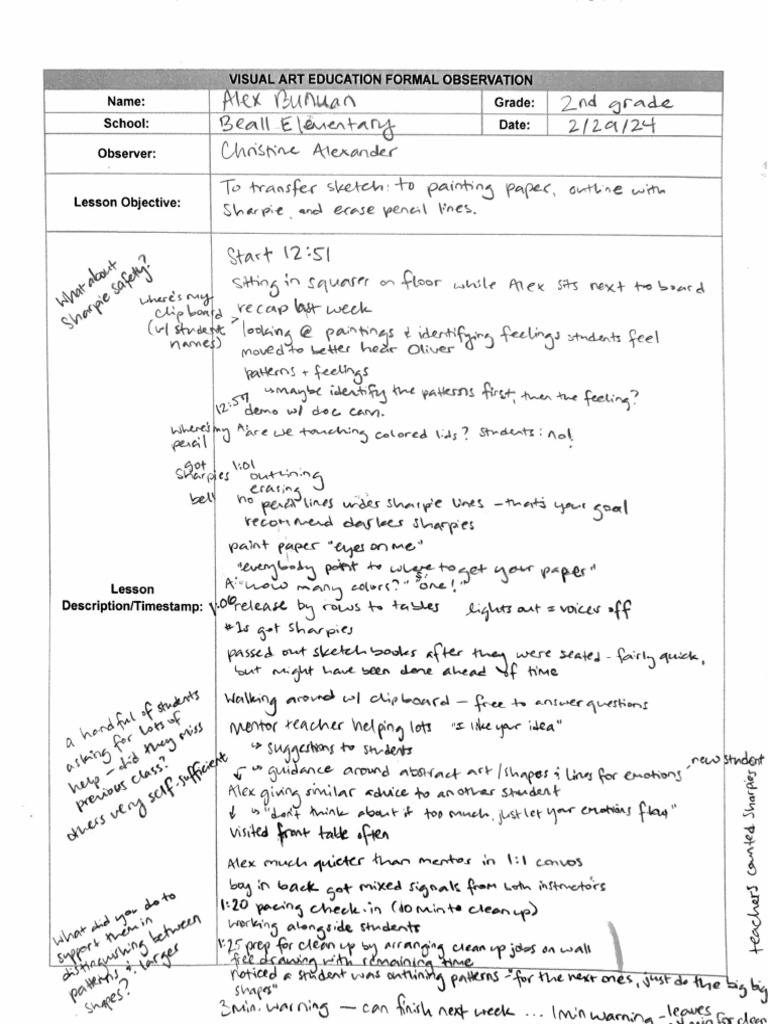 VISUAL ART EDUCATION FORMAL OBSERVATION
Name: Alex Bunuan Grade: 2nd grade
School: Beall Elementary Date: 2/29/24
Observer: Christine Alexander
Lesson Objective: To transfer sketch: to painting paper, outline with
Sharpie, and erase pencil lines.
What about
Sharpie safety?
Start 12:51
sitting in squares on floor while Alex sits next to board
where's my
clipboard
(w/ student
names)
recap last week
looking @ paintings & identifying feelings students feel
moved to better hear Oliver
patterns + feelings
↳ maybe identify the patterns first, then the feeling?
12:57
demo w/ doc cam.
where's my
pencil
A: are we touching colored lids? students: no!
got
Sharpies
bell
1:01
outlining
erasing
no pencil lines under sharpie lines - that's your goal
recommend darker sharpies
paint paper "eyes on me"
"everybody point to where to get your paper"
A: "how many colors?" S: "one!"
Lesson
Description/Timestamp:
1:06 release by rows to tables lights out = voices off
#1s got sharpies
passed out sketchbooks after they were seated - fairly quick,
but might have been done ahead of time
a handful of students
asking for lots of
help - did they miss
previous class?
others very self-sufficient
walking around w/ clipboard - free to answer questions
mentor teacher helping lots "I like your idea"
↳ suggestions to students
↳ guidance around abstract art/shapes & lines for emotions, new student
Alex giving similar advice to another student
↳ "don't think about it too much, just let your emotions flow"
visited front table often
teachers counted sharpies
Alex much quieter than mentor in 1:1 convos
boy in back got mixed signals from both instructors
1:20 pacing check-in (10 min to clean up)
working alongside students
What did you do to
support them in
distinguishing between
patterns & larger
shapes?
1:25 prep for clean up by arranging clean up jobs on wall
free drawing with remaining time
noticed a student was outlining patterns - "for the next ones, just do the big big
shapes"
3 min. warning — can finish next week ... 1 min warning - leaves
min for clean